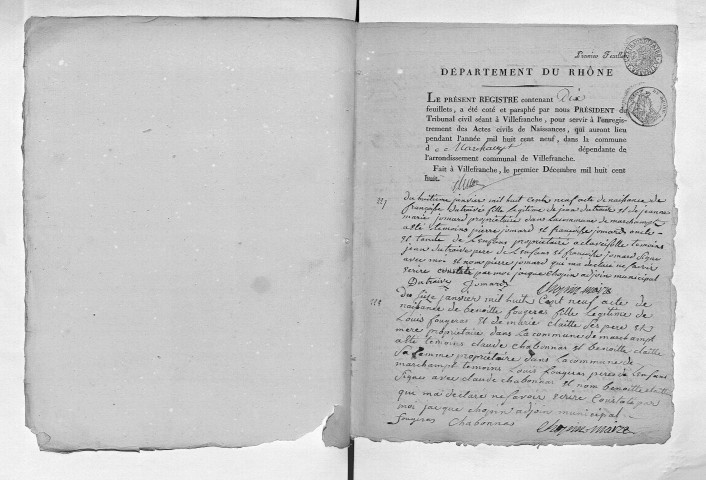 Premier Feuillet
DÉPARTEMENT DU RHÔNE
LE PRÉSENT REGISTRE contenant Dix
feuillets, a été coté et paraphé par nous PRÉSIDENT du
Tribunal civil séant à Villefranche, pour servir à l'enregis-
trement des Actes civils de Naissances, qui auront lieu
pendant l'année mil huit cent neuf, dans la commune
d e Marchampt dépendante de
l'arrondissement communal de Villefranche.
Fait à Villefranche, le premier Décembre mil huit cent
huit.
du huitieme janvier mil huit cent neuf acte de naissance de
françoise dutraive fille legitime de jean dutraive et de jeanne
marie jomard propriétaire dans la commune de marchampt
a été temoins pierre jomard et françoise jomard oncle
et tante de l'enfans propriétaire
jean dutraive pere de l'enfans et françoise jomard signe
avec moi et non pierre jomard qui ma declare ne savoir
ecrire constate par moi jacque chopin adjoin municipal
Dutraive Jomard Chopin
118
du seize janvier mil huit cent neuf acte de
naissance de benoitte fougeras fille legitime de
Louis fougeras et de marie claitte ses pere et
mere propriétaire dans la commune de marchampt
a été temoins claude chabonnas et benoitte claitte
sa famme propriétaire dans la commune de
marchampt temoins Louis fougeras pere de l'enfans
signes avec claude chabonnas et nom benoitte claitte
qui ma declare ne savoir ecrire constate par
moi jacque chopin adjoin municipal
fougeras Chabonnas Chopin